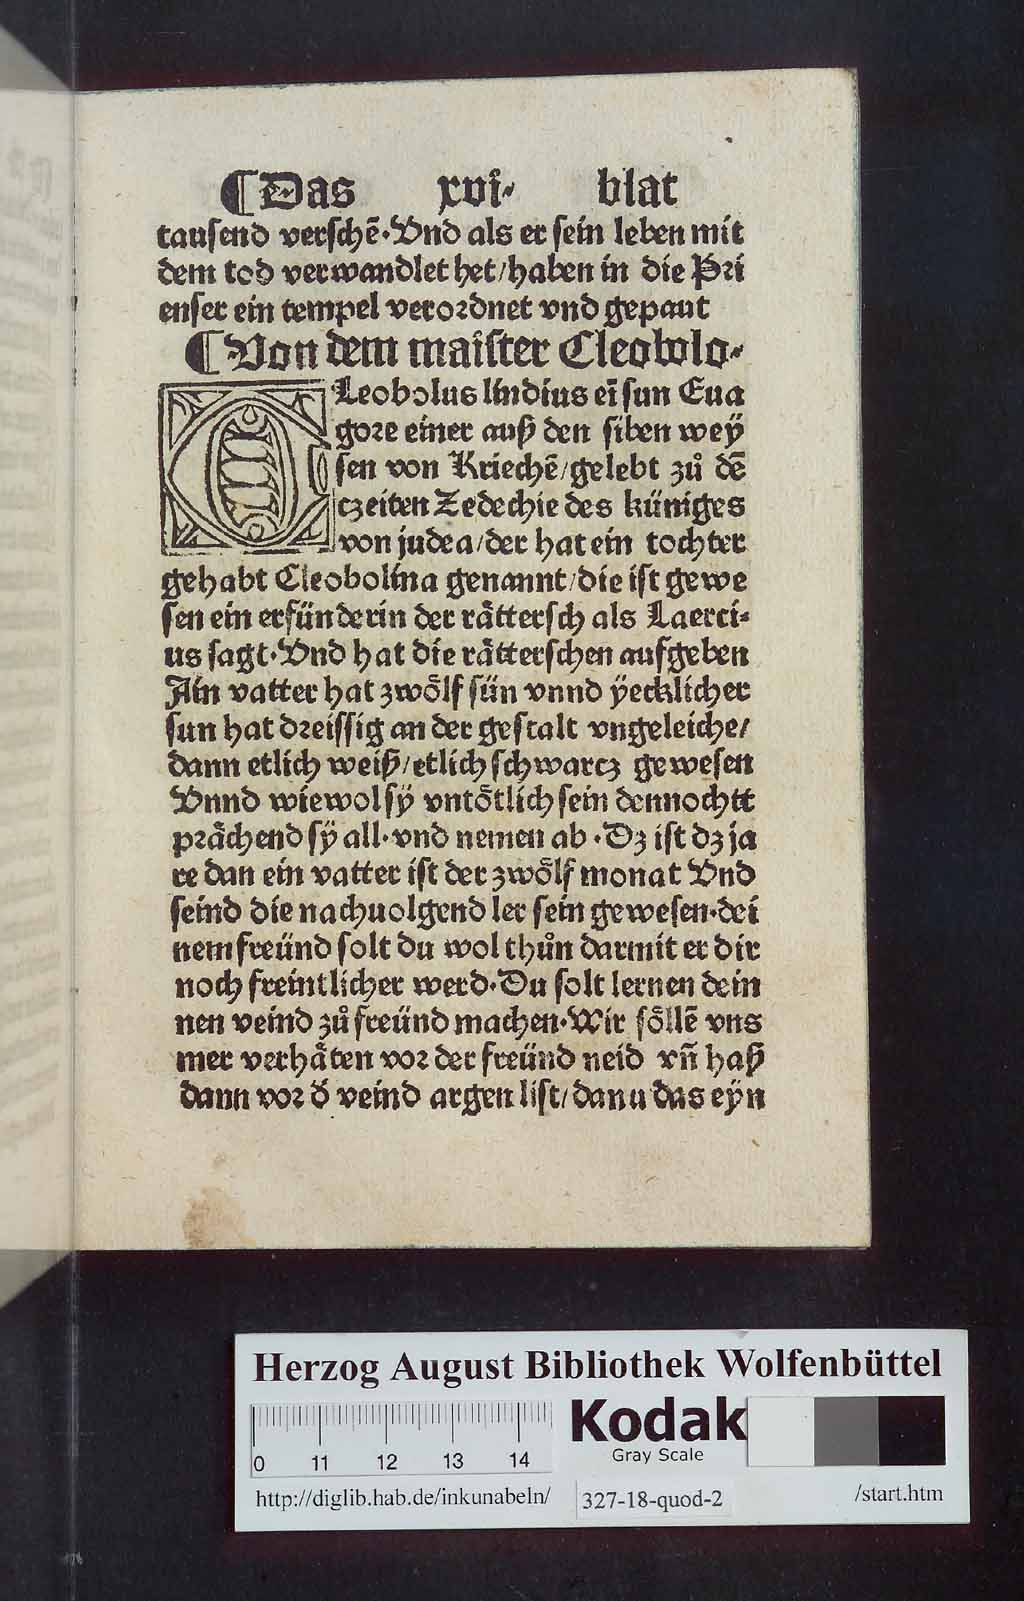 ¶Das xvi· blat
tausend verschē·Vnd als er sein leben mit
dem tod verwandlet het/haben in die Pri
enser ein tempel verordnet vnd gepaut
¶Von dem maister Cleobolo·
CLeobolus lindius eī sun Eua
gore einer auß den siben weÿ
sen von Kriechē/gelebt zů dē
czeiten Zedechie des küniges
von judea/der hat ein tochter
gehabt Cleobolina genannt/die ist gewe
sen ein erfünderin der rättersch als Laerci⸗
us sagt·Vnd hat die rätterschen aufgeben
Ain vatter hat zwölf sün vnnd ÿecklicher
sun hat dreissig an der gestalt vngeleiche/
dann etlich weiß/etlich schwarcz gewesen
Vnnd wiewol sÿ vntötlich sein dennochtt
prächend sÿ all·vnd nemen ab·Dz ist dz ja
re dan ein vatter ist der zwölf monat Vnd
seind die nachuolgend ler sein gewesen·dei
nem freünd solt du wol thůn darmit er dir
noch freintlicher werd·Du solt lernen dein
nen veind zů freünd machen·Wir söllē vns
mer verhäten vor der freünd neid vn̄ haß
dann vor d̄ veind argen list/dann das eÿn
Herzog August Bibliothek Wolfenbüttel
0 11 12 13 14
Kodak
Gray Scale
http://diglib.hab.de/inkunabeln/ 327-18-quod-2 /start.htm